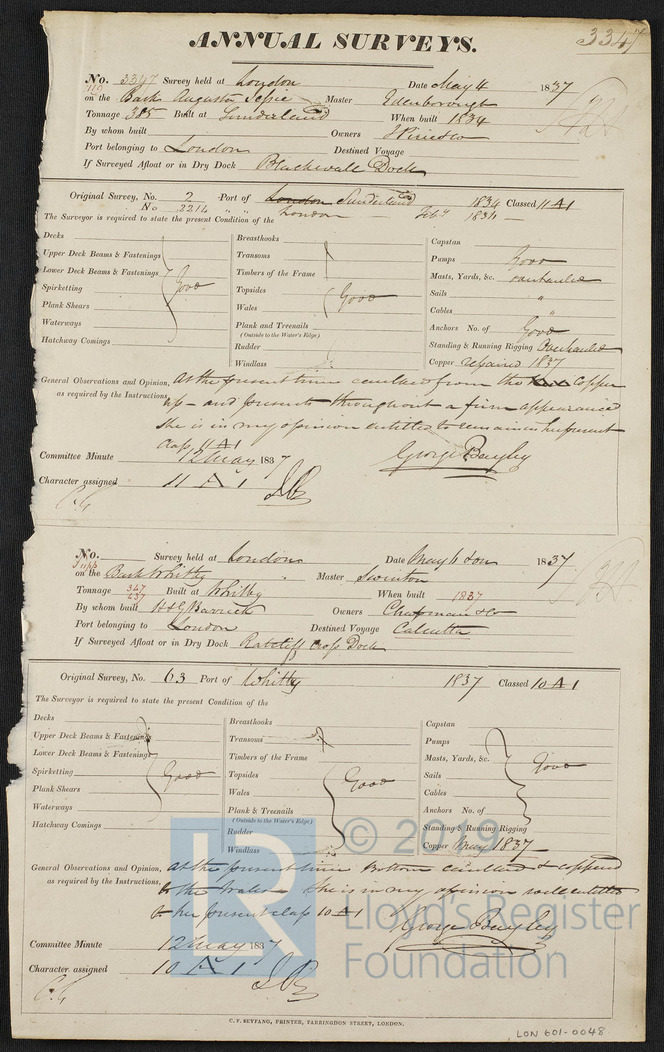 3347
ANNUAL SURVEYS.
No. 3347 Survey held at London Date May 4 1837
on the Bark Augusta Jessie Master Edenborough
Tonnage 385 Built at Sunderland When built 1834
By whom built Owners J Pirie & Co
Port belonging to London Destined Voyage
If Surveyed Afloat or in Dry Dock Blackwall Dock
Original Survey, No. 2 Port of London Sunderland 1834 Classed 11 A 1
No 2214 " " London Feby 1836
The Surveyor is required to state the present Condition of the
Decks
Upper Deck Beams & Fastenings
Lower Deck Beams & Fastenings
Spirketting Good
Plank Shears
Waterways
Hatchway Comings
Breasthooks
Transoms
Timbers of the Frame
Topsides
Wales Good
Plank and Treenails
(Outside to the Water's Edge)
Rudder
Windlass
Capstan
Pumps Good
Masts, Yards, &c. overhauled
Sails "
Cables "
Anchors No. of Good
Standing & Running Rigging Overhauled
Copper repaired 1837
General Observations and Opinion, At the present time caulked from the copper
as required by the Instructions, up - and presents throughout a firm appearance
She is in my opinion entitled to remain in her present
Class 11 A 1
Committee Minute 12 May 1837 George Bayley
Character assigned 11 A 1
No. Survey held at London Date May 4 1837
on the Bark Whitby Master Swinton
Tonnage 347 437 Built at Whitby When built 1837
By whom built H & G Barrick Owners Chapman & Co
Port belonging to London Destined Voyage Calcutta
If Surveyed Afloat or in Dry Dock Ratcliff Cross Dock
Original Survey, No. 63 Port of Whitby 1837 Classed 10 A 1
The Surveyor is required to state the present Condition of the
Decks
Upper Deck Beams & Fastenings
Lower Deck Beams & Fastenings
Spirketting Good
Plank Shears
Waterways
Hatchway Comings
Breasthooks
Transoms
Timbers of the Frame
Topsides Good
Wales
Plank & Treenails
(Outside to the Water's Edge)
Rudder
Windlass
Capstan
Pumps
Masts, Yards, &c. Good
Sails
Cables
Anchors No. of
Standing & Running Rigging
Copper May 1837
General Observations and Opinion, At the present time Bottom caulked & coppered
as required by the Instructions, to the Wales She is in my opinion well entitled
to her present class 10 A 1 George Bayley
Committee Minute 12 May 1837
Character assigned 10 A 1
LR © 2019
Lloyd's Register
Foundation
C. F. SEYFANG, PRINTER, FARRINGDON STREET, LONDON.
LON 601-0048